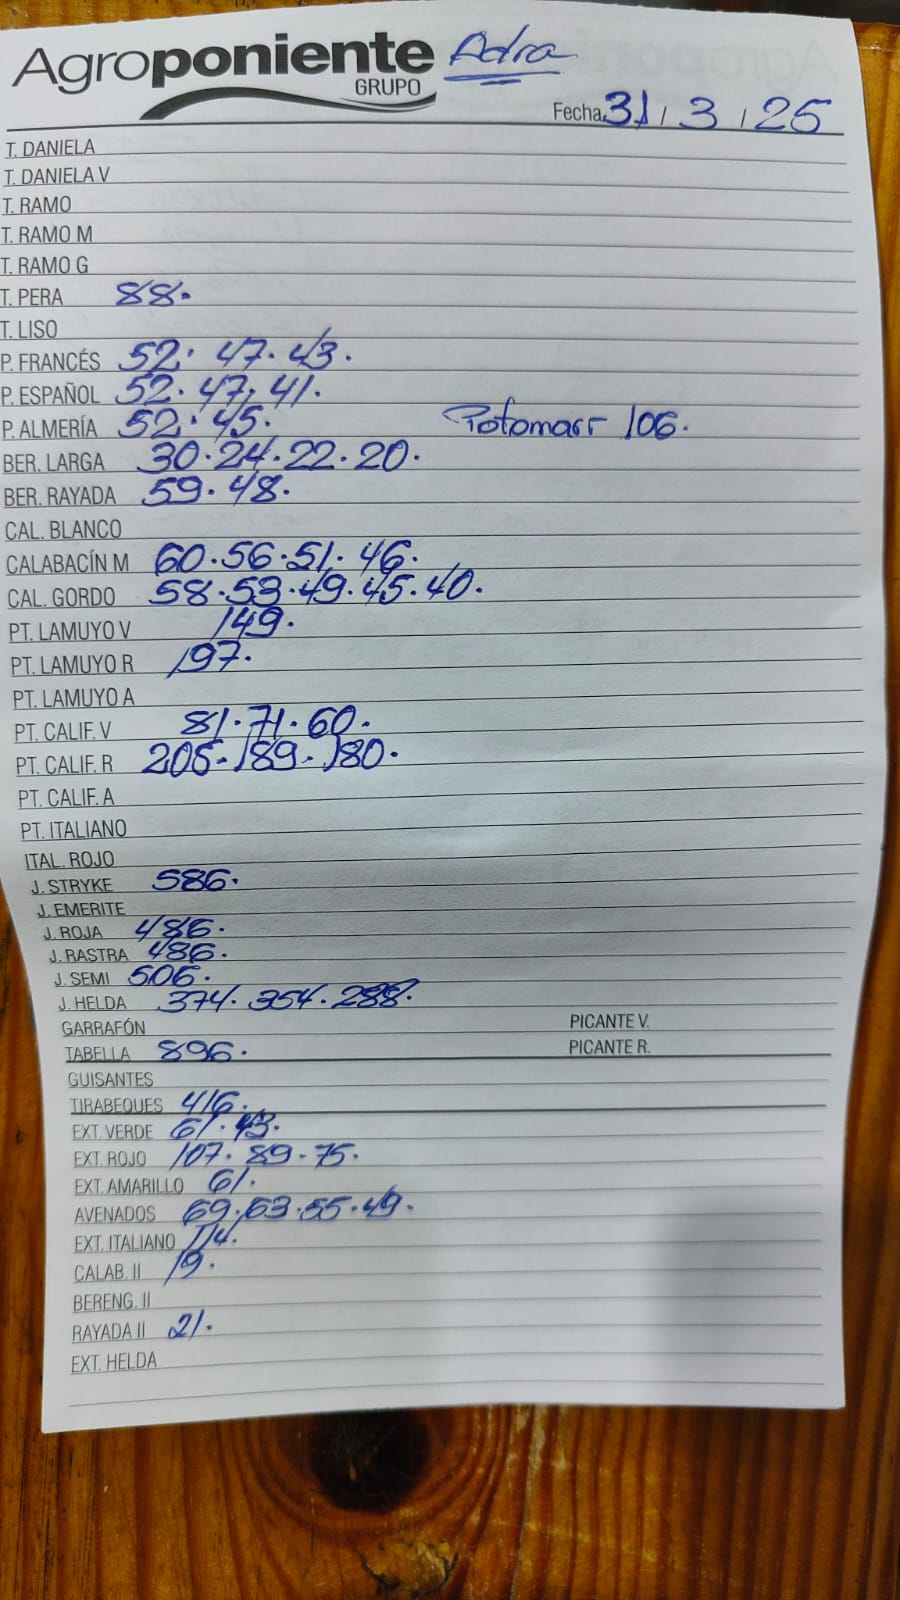 Agroponiente Adra
GRUPO
Fecha 31 / 3 / 25
T. DANIELA
T. DANIELA V
T. RAMO
T. RAMO M
T. RAMO G
T. PERA 88.
T. LISO
P. FRANCÉS 52. 47. 43.
P. ESPAÑOL 52. 47. 41.
P. ALMERÍA 52. 45. Potomarr 106.
BER. LARGA 30. 24. 22. 20.
BER. RAYADA 59. 48.
CAL. BLANCO
CALABACÍN M 60. 56. 51. 46.
CAL. GORDO 58. 53. 49. 45. 40.
PT. LAMUYO V 149.
PT. LAMUYO R 197.
PT. LAMUYO A
PT. CALIF. V 81. 71. 60.
PT. CALIF. R 205. 189. 180.
PT. CALIF. A
PT. ITALIANO
ITAL. ROJO
J. STRYKE 586.
J. EMERITE
J. ROJA 486.
J. RASTRA 486.
J. SEMI 506.
J. HELDA 374. 354. 288.
GARRAFÓN PICANTE V.
TABELLA 896. PICANTE R.
GUISANTES
TIRABEQUES 416.
EXT. VERDE 61. 43.
EXT. ROJO 107. 89. 75.
EXT. AMARILLO 61.
AVENADOS 69. 63. 55. 49.
EXT. ITALIANO 114.
CALAB. II 19.
BERENG. II
RAYADA II 21.
EXT. HELDA